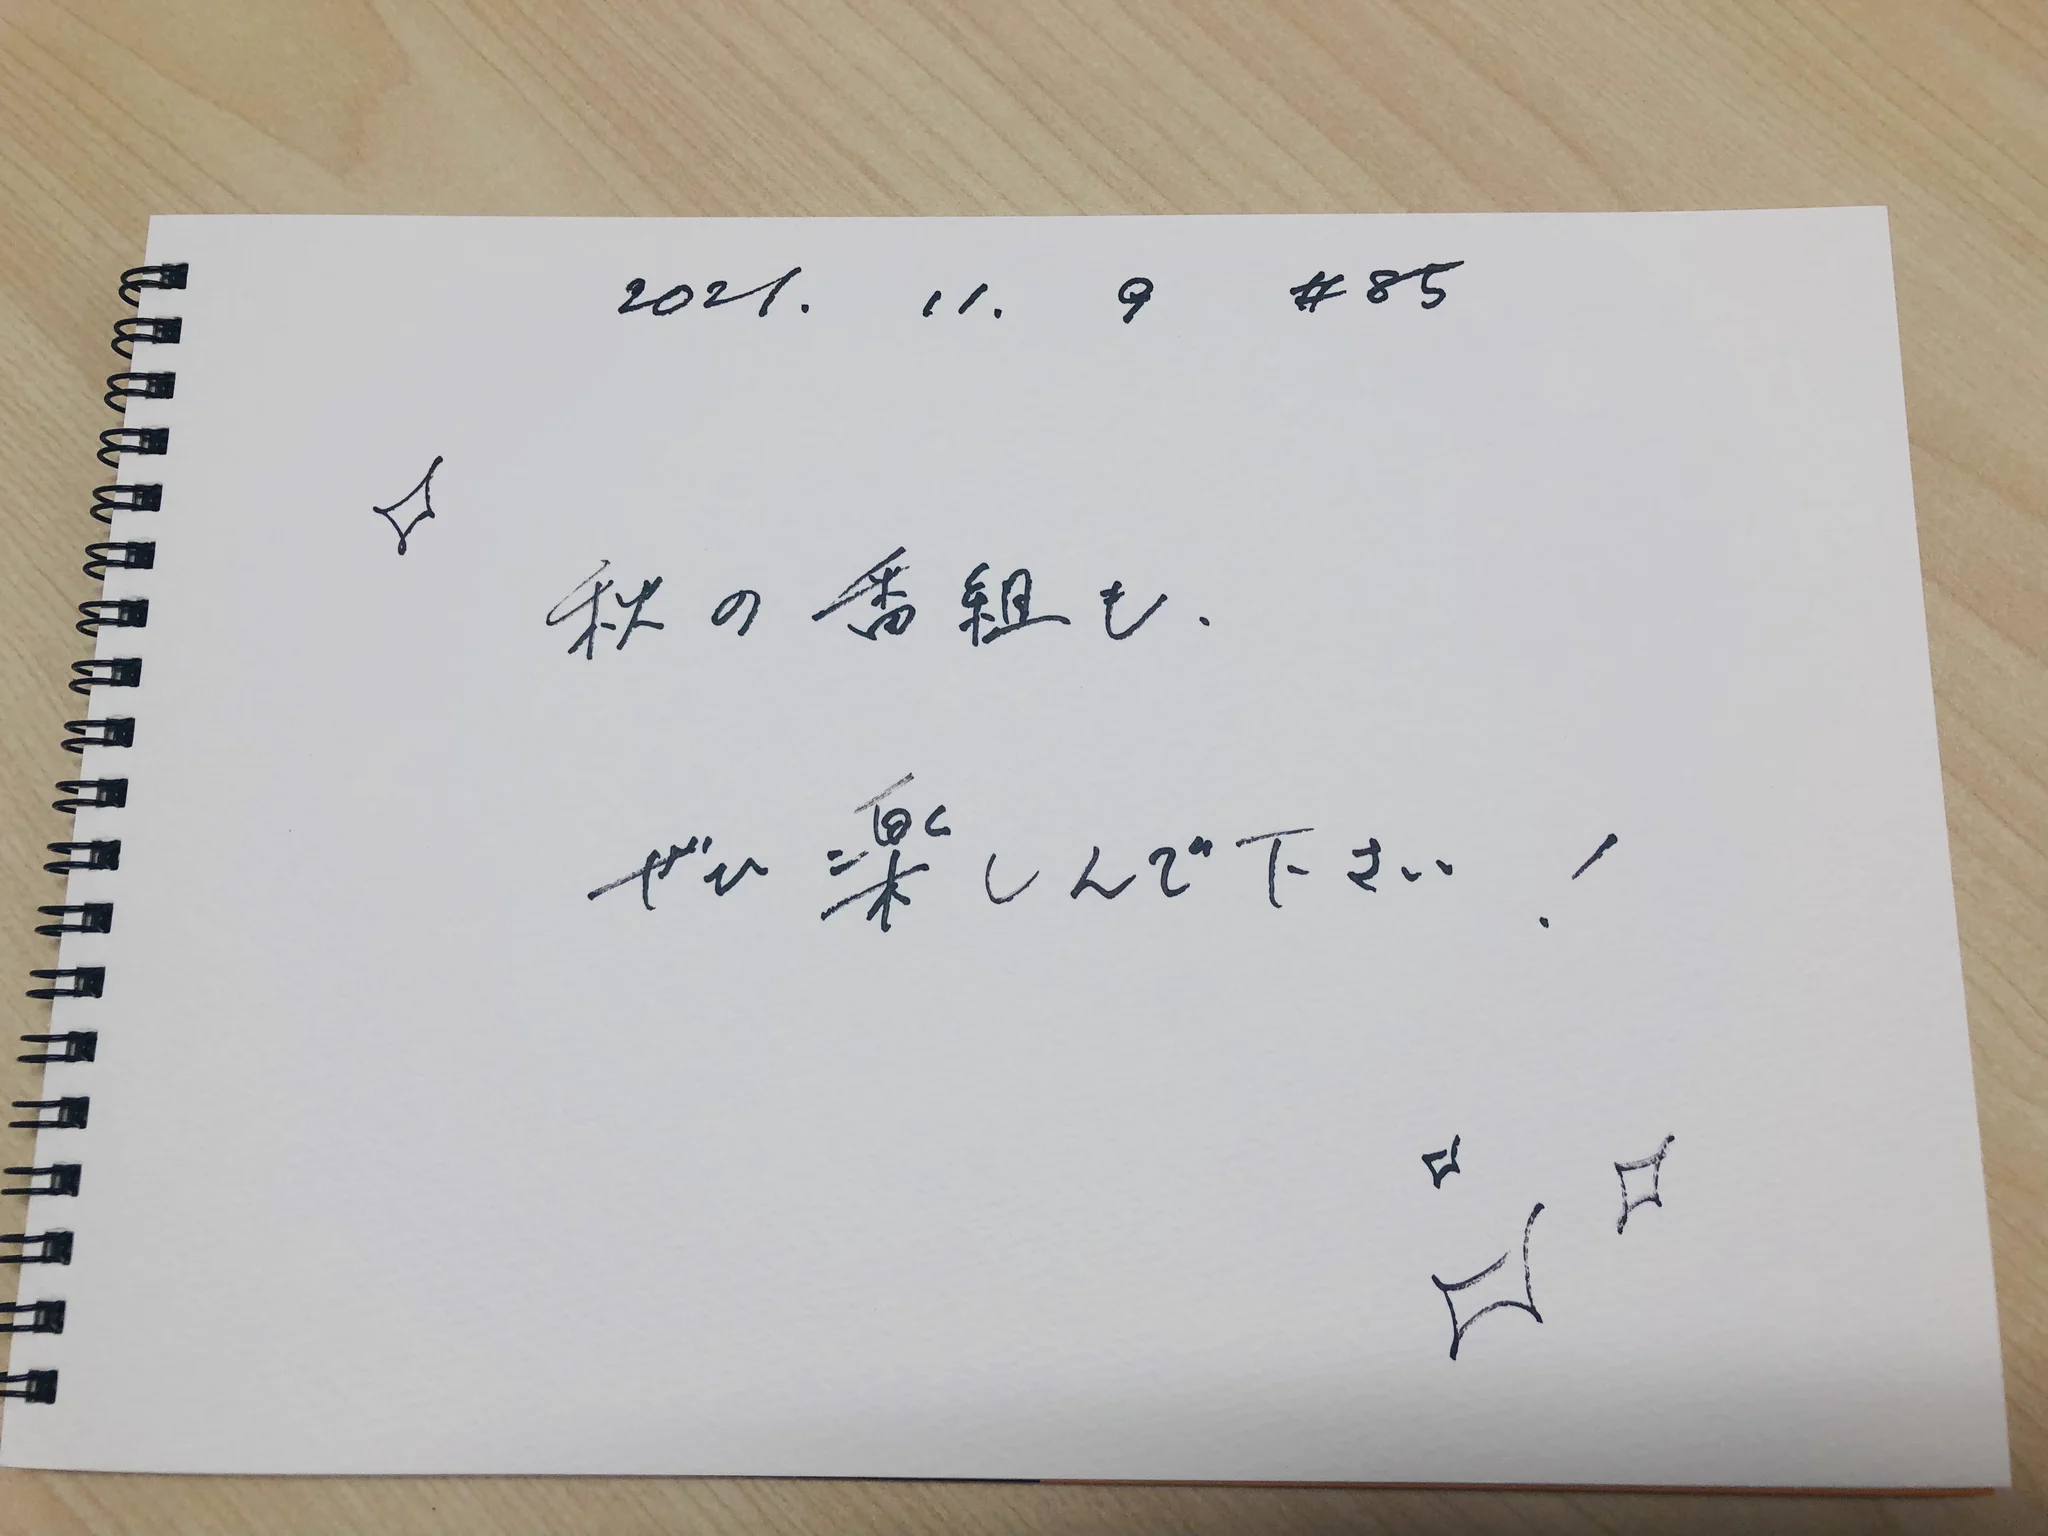 2021. 11. 9 #85
秋の番組も、
ぜひ楽しんで下さい!